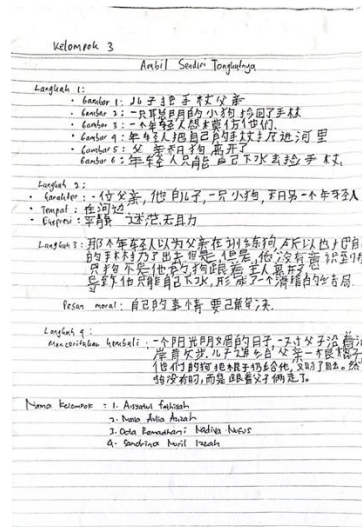 Kelompok 3
Ambil Sendiri Tongkatnya
Langkah 1:
• Gambar 1: 儿子把手杖父亲
• Gambar 2: 一只聪明的小狗捡回了手杖
• Gambar 3: 一个年轻人想模仿他们.
• Gambar 4: 年轻人把自己的手杖扔进河里
• Gambar 5: 父亲和狗离开了
Gambar 6: 年轻人只能自己下水去捡手杖.
Langkah 2:
• Karakter: 一位父亲, 他的儿子, 一只小狗, 和另一个年轻人
• Tempat: 在河边
• Ekspresi: 平静 迷茫无力
Langkah 3: 那个年轻人以为父亲在训练狗, 所以他也把自己
的手杖扔了出去. 但是, 他没有意识到
只狗不是他的. 狗跟着主人离开了.
他只能自己下水, 形成了一个滑稽的结局.
Pesan moral: 自己的事情要己解决.
Langkah 4:
Menceritakan kembali: 一个阳光明媚的日子, 一对父子沿着
岸散步. 儿子递给父亲一根棍子
他们的狗把棍子
狗没有, 而是跟着父子俩走了.
Nama Kelompok: 1.
2. Aulia Azizah
3. Ramadhani Nadiva
4. Sandrina Nuril Izzah